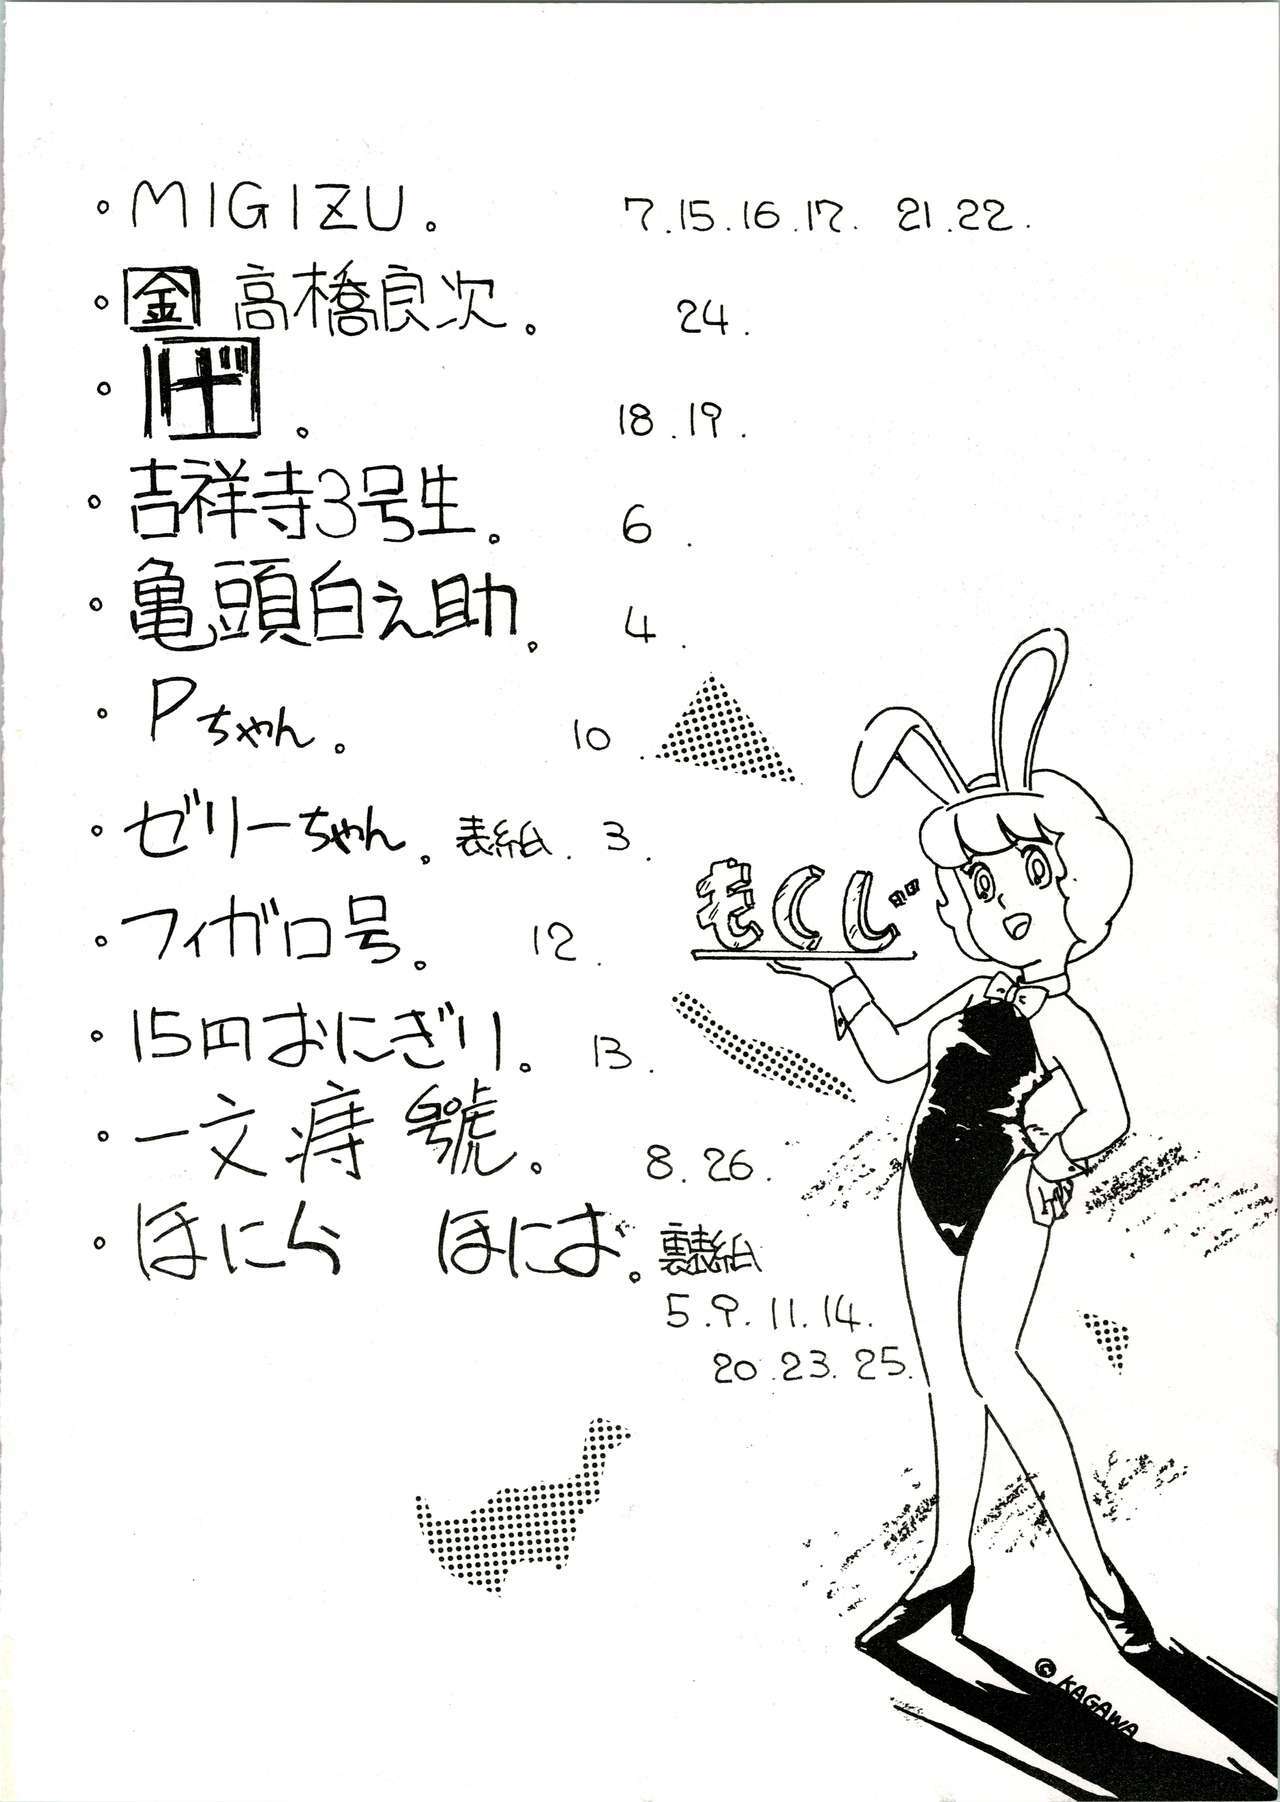 。MIGIZU。 7.15.16.17. 21.22.
。金 高橋良次。 24.
。 。 18.19.
。吉祥寺3号生。 6.
。亀頭白え助。 4.
。Pちゃん。 10.
。ゼリーちゃん。表紙. 3.
。フィガロ号。 12.
。15円おにぎり。 13.
。一文痔 號。 8.26.
。ほにら ほにお。裏表紙
5.9.11.14.
20.23.25.
もくじ
© KAGAWA